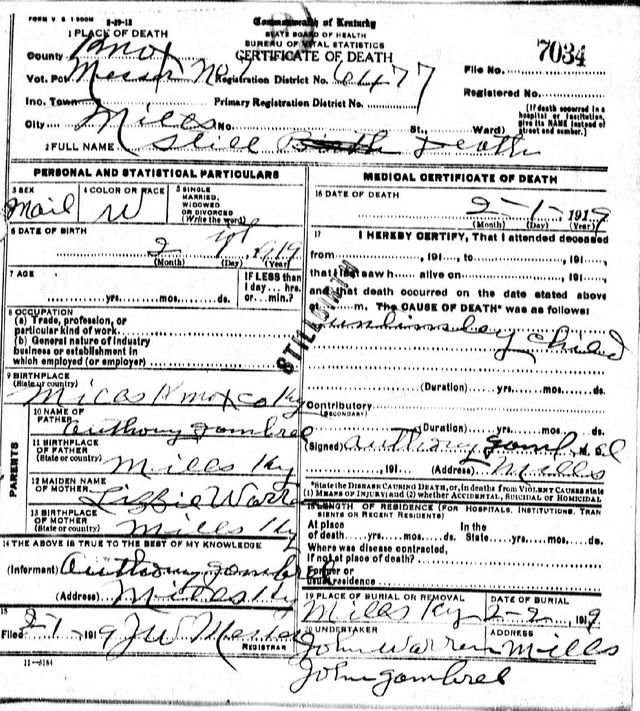 FORM V. S. 1 500M 3-29-12
Commonwealth of Kentucky
STATE BOARD OF HEALTH
BUREAU OF VITAL STATISTICS
CERTIFICATE OF DEATH
1 PLACE OF DEATH
County Knox
Vot. Pct. No 1 Registration District No. 6477
File No. 7034
Inc. Town Primary Registration District No.
Registered No.
City Mills No. St., Ward)
(If death occurred in a hospital or institution, give its NAME instead of street and number.)
2 FULL NAME Still Birth Death
PERSONAL AND STATISTICAL PARTICULARS
3 SEX
Mail
4 COLOR OR RACE
W
5 SINGLE MARRIED, WIDOWED OR DIVORCED (Write the word)
6 DATE OF BIRTH
2 1919
(Month) (Day) (Year)
7 AGE
yrs. mos. ds.
IF LESS than 1 day... hrs. or... min.?
8 OCCUPATION
(a) Trade, profession, or particular kind of work
(b) General nature of industry business or establishment in which employed (or employer)
9 BIRTHPLACE
(State or country) Knox co Ky
PARENTS
10 NAME OF FATHER
Anthony Gambrel
11 BIRTHPLACE OF FATHER
(State or country) Mills Ky
12 MAIDEN NAME OF MOTHER
Lizzie Warren
13 BIRTHPLACE OF MOTHER
(State or country) Mills Ky
14 THE ABOVE IS TRUE TO THE BEST OF MY KNOWLEDGE
(Informant) Anthony Gambrel
(Address) Mills Ky
15
Filed 2-1 1919 J W
REGISTRAR
11-5184
MEDICAL CERTIFICATE OF DEATH
16 DATE OF DEATH
2-1-1919
(Month) (Day) (Year)
17 I HEREBY CERTIFY, That I attended deceased
from , 191 , to , 191 ,
that I last saw h alive on , 191 ,
and that death occurred on the date stated above
m. The CAUSE OF DEATH* was as follows:
child
STILLBIRTH
(Duration) yrs. mos. ds.
Contributory
(SECONDARY)
(Duration) yrs. mos. ds.
(Signed) Anthony Gambrel M. D.
, 191 (Address) Mills
*State the DISEASE CAUSING DEATH, or, in deaths from VIOLENT CAUSES state (1) MEANS OF INJURY; and (2) whether ACCIDENTAL, SUICIDAL OR HOMICIDAL
18 LENGTH OF RESIDENCE (FOR HOSPITALS, INSTITUTIONS, TRANSIENTS OR RECENT RESIDENTS)
At place of death yrs. mos. ds. In the State yrs. mos. ds.
Where was disease contracted, if not at place of death?
Former or usual residence
19 PLACE OF BURIAL OR REMOVAL
Mills Ky
DATE OF BURIAL
2-2 1919
20 UNDERTAKER
John Warren
ADDRESS
Mills
John Gambrel